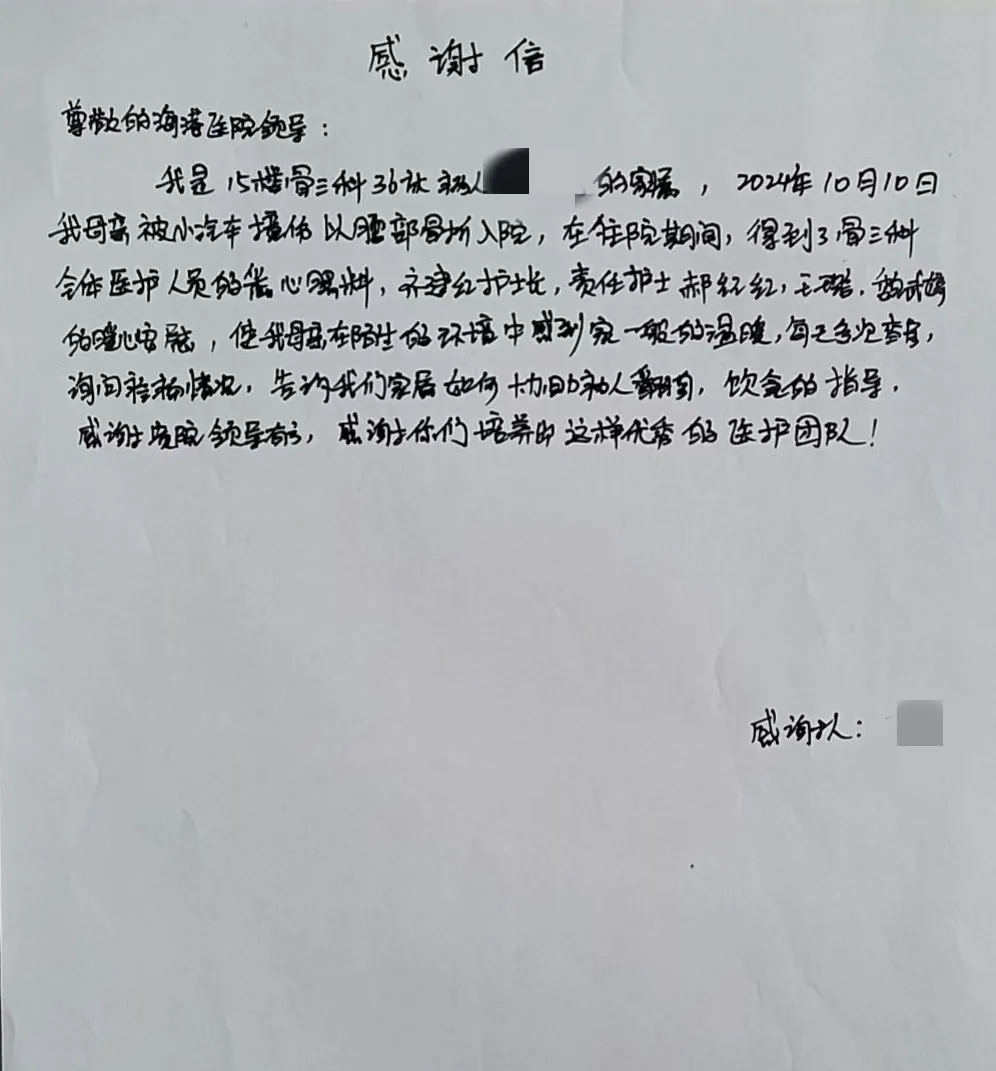 感谢信
尊敬的海港医院领导：
我是15楼骨三科36床病人 的家属，2024年10月10日
我母亲被小汽车撞伤以腰部骨折入院，在住院期间，得到了骨三科
全体医护人员的 心照料，齐建红护士长，责任护士郝红红，王 ，
的暖心安慰，使我母亲在陌生的环境中感到家一般的温暖，每天多次查房，
询问 病情况，告诉我们家属如何协助病人翻身，饮食的指导，
感谢贵院领导有方，感谢你们培养出这样优秀的医护团队！
感谢人：